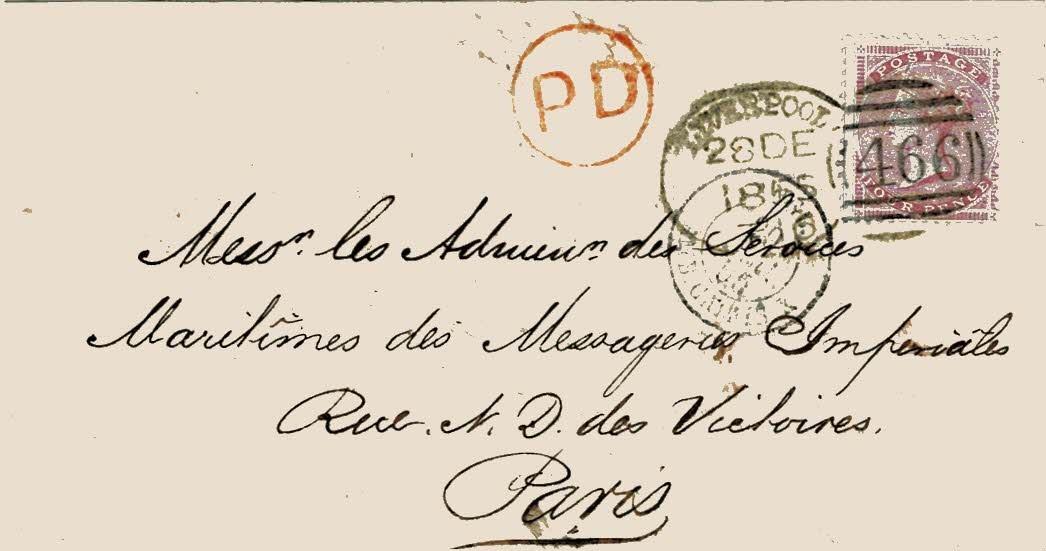 PD
LIVERPOOL
28 DE
18
POSTAGE
466
FOUR PENCE
Messrs. les Adminrn. des Services
Maritimes des Messageries Impériâles
Rue. N. D. des Victoires.
Paris